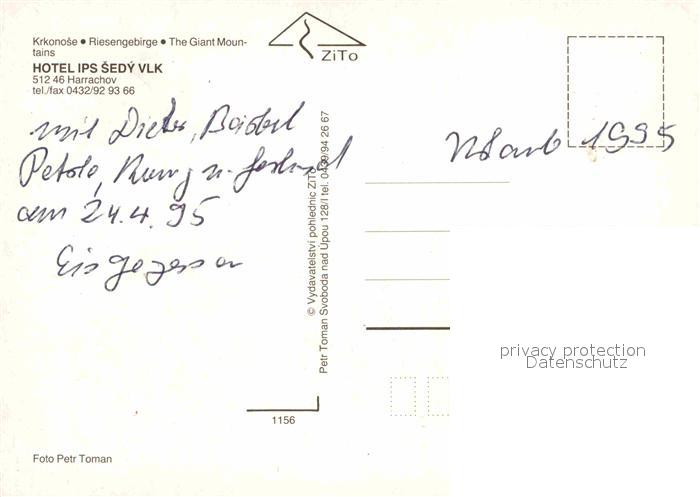 Krkonoše ● Riesengebirge ● The Giant Moun-
tains
HOTEL IPS ŠEDÝ VLK
512 46 Harrachov
tel./fax 0432/92 93 66
ZiTo
mit Dieter,
am 24.4.95
Eis gegessen
Urlaub 1995
© Vydavatelství pohlednic ZiTo
Petr Toman Svoboda nad Úpou 128/I tel. 0439/94 26 67
privacy protection
Datenschutz
1156
Foto Petr Toman